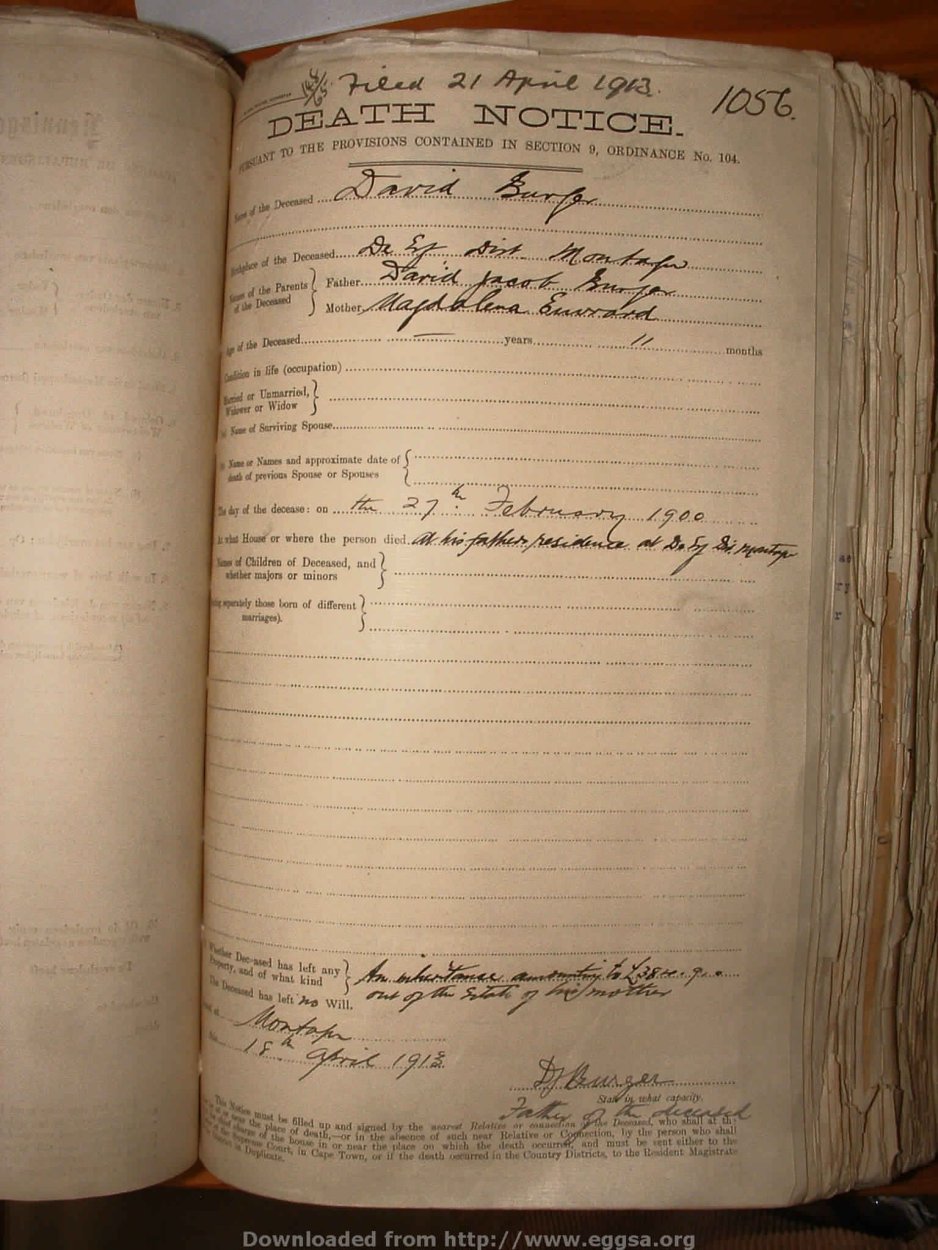 Filed 21 April 1913.
1056.
DEATH NOTICE.
PURSUANT TO THE PROVISIONS CONTAINED IN SECTION 9, ORDINANCE No. 104.
Name of the Deceased ... David Burger
Birthplace of the Deceased... De Dist. Montagu
Names of the Parents of the Deceased } Father... David Jacob Burger
Mother... Magdalena
Age of the Deceased... — years... 11 months
Condition in life (occupation)
Married or Unmarried, Widower or Widow }
Name of Surviving Spouse...
Name or Names and approximate date of death of previous Spouse or Spouses {
The day of the decease: on ... the 27th February 1900
At what House or where the person died. At his fathers residence at De Dis. Montagu
Names of Children of Deceased, and whether majors or minors }
separately those born of different marriages). }
Whether Deceased has left any Property, and of what kind } An inheritance amounting to £384.9.0
out of the Estate of his mother
The Deceased has left no Will.
at Montagu
18th April 1913
DJBurger
State in what capacity.
Father of the deceased
This Notice must be filled up and signed by the nearest Relative or connection of the Deceased, who shall at the
at or near the place of death,—or in the absence of such near Relative or Connection, by the person who shall
charge of the house in or near the place on which the death occurred, and must be sent either to the
of the Supreme Court, in Cape Town, or if the death occurred in the Country Districts, to the Resident Magistrate
in Duplicate.
Downloaded from http://www.eggsa.org